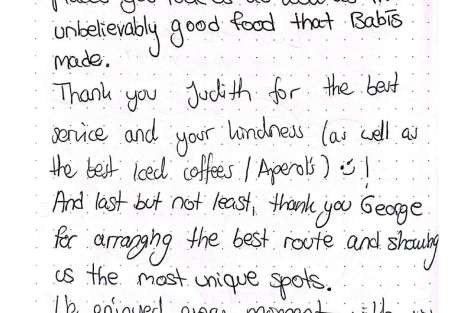 unbelievably good food that Babis
made.
Thank you Judith for the best
service and your kindness (as well as
the best Iced coffees / Aperol's) !
And last but not least, thank you George
for arranging the best route and showing
us the most unique spots.
enjoyed every moment with